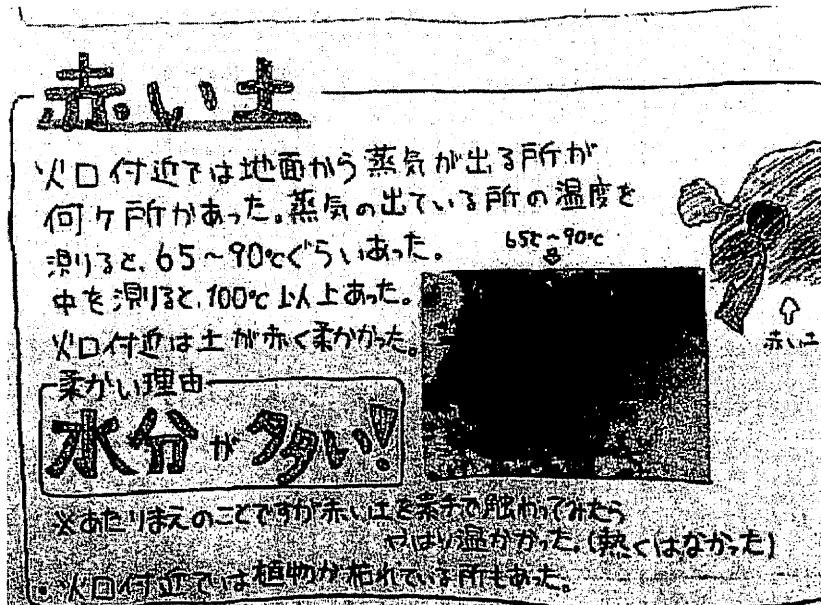 赤い土
火口付近では地面から蒸気が出る所が
何ヶ所かあった。蒸気の出ている所の温度を
測ると、65〜90℃ぐらいあった。
中を測ると、100℃以上あった。
火口付近は土が赤く柔かかった。
65℃〜90℃
赤い土
柔かい理由
水分が多い!
※あたりまえのことですが赤い土を素手で触わってみたら
やはり温かかった。(熱くはなかった)
・火口付近では植物が枯れている所もあった。